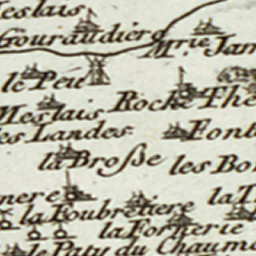 eslais
Gouraudiere
M.rie Jam
le Peu
Roche Fhe
Meslais
es Landes
Font
la Broſse
les Bo
nere
la Foubretiere
la T
la Fornerie
le Paty du Chaume